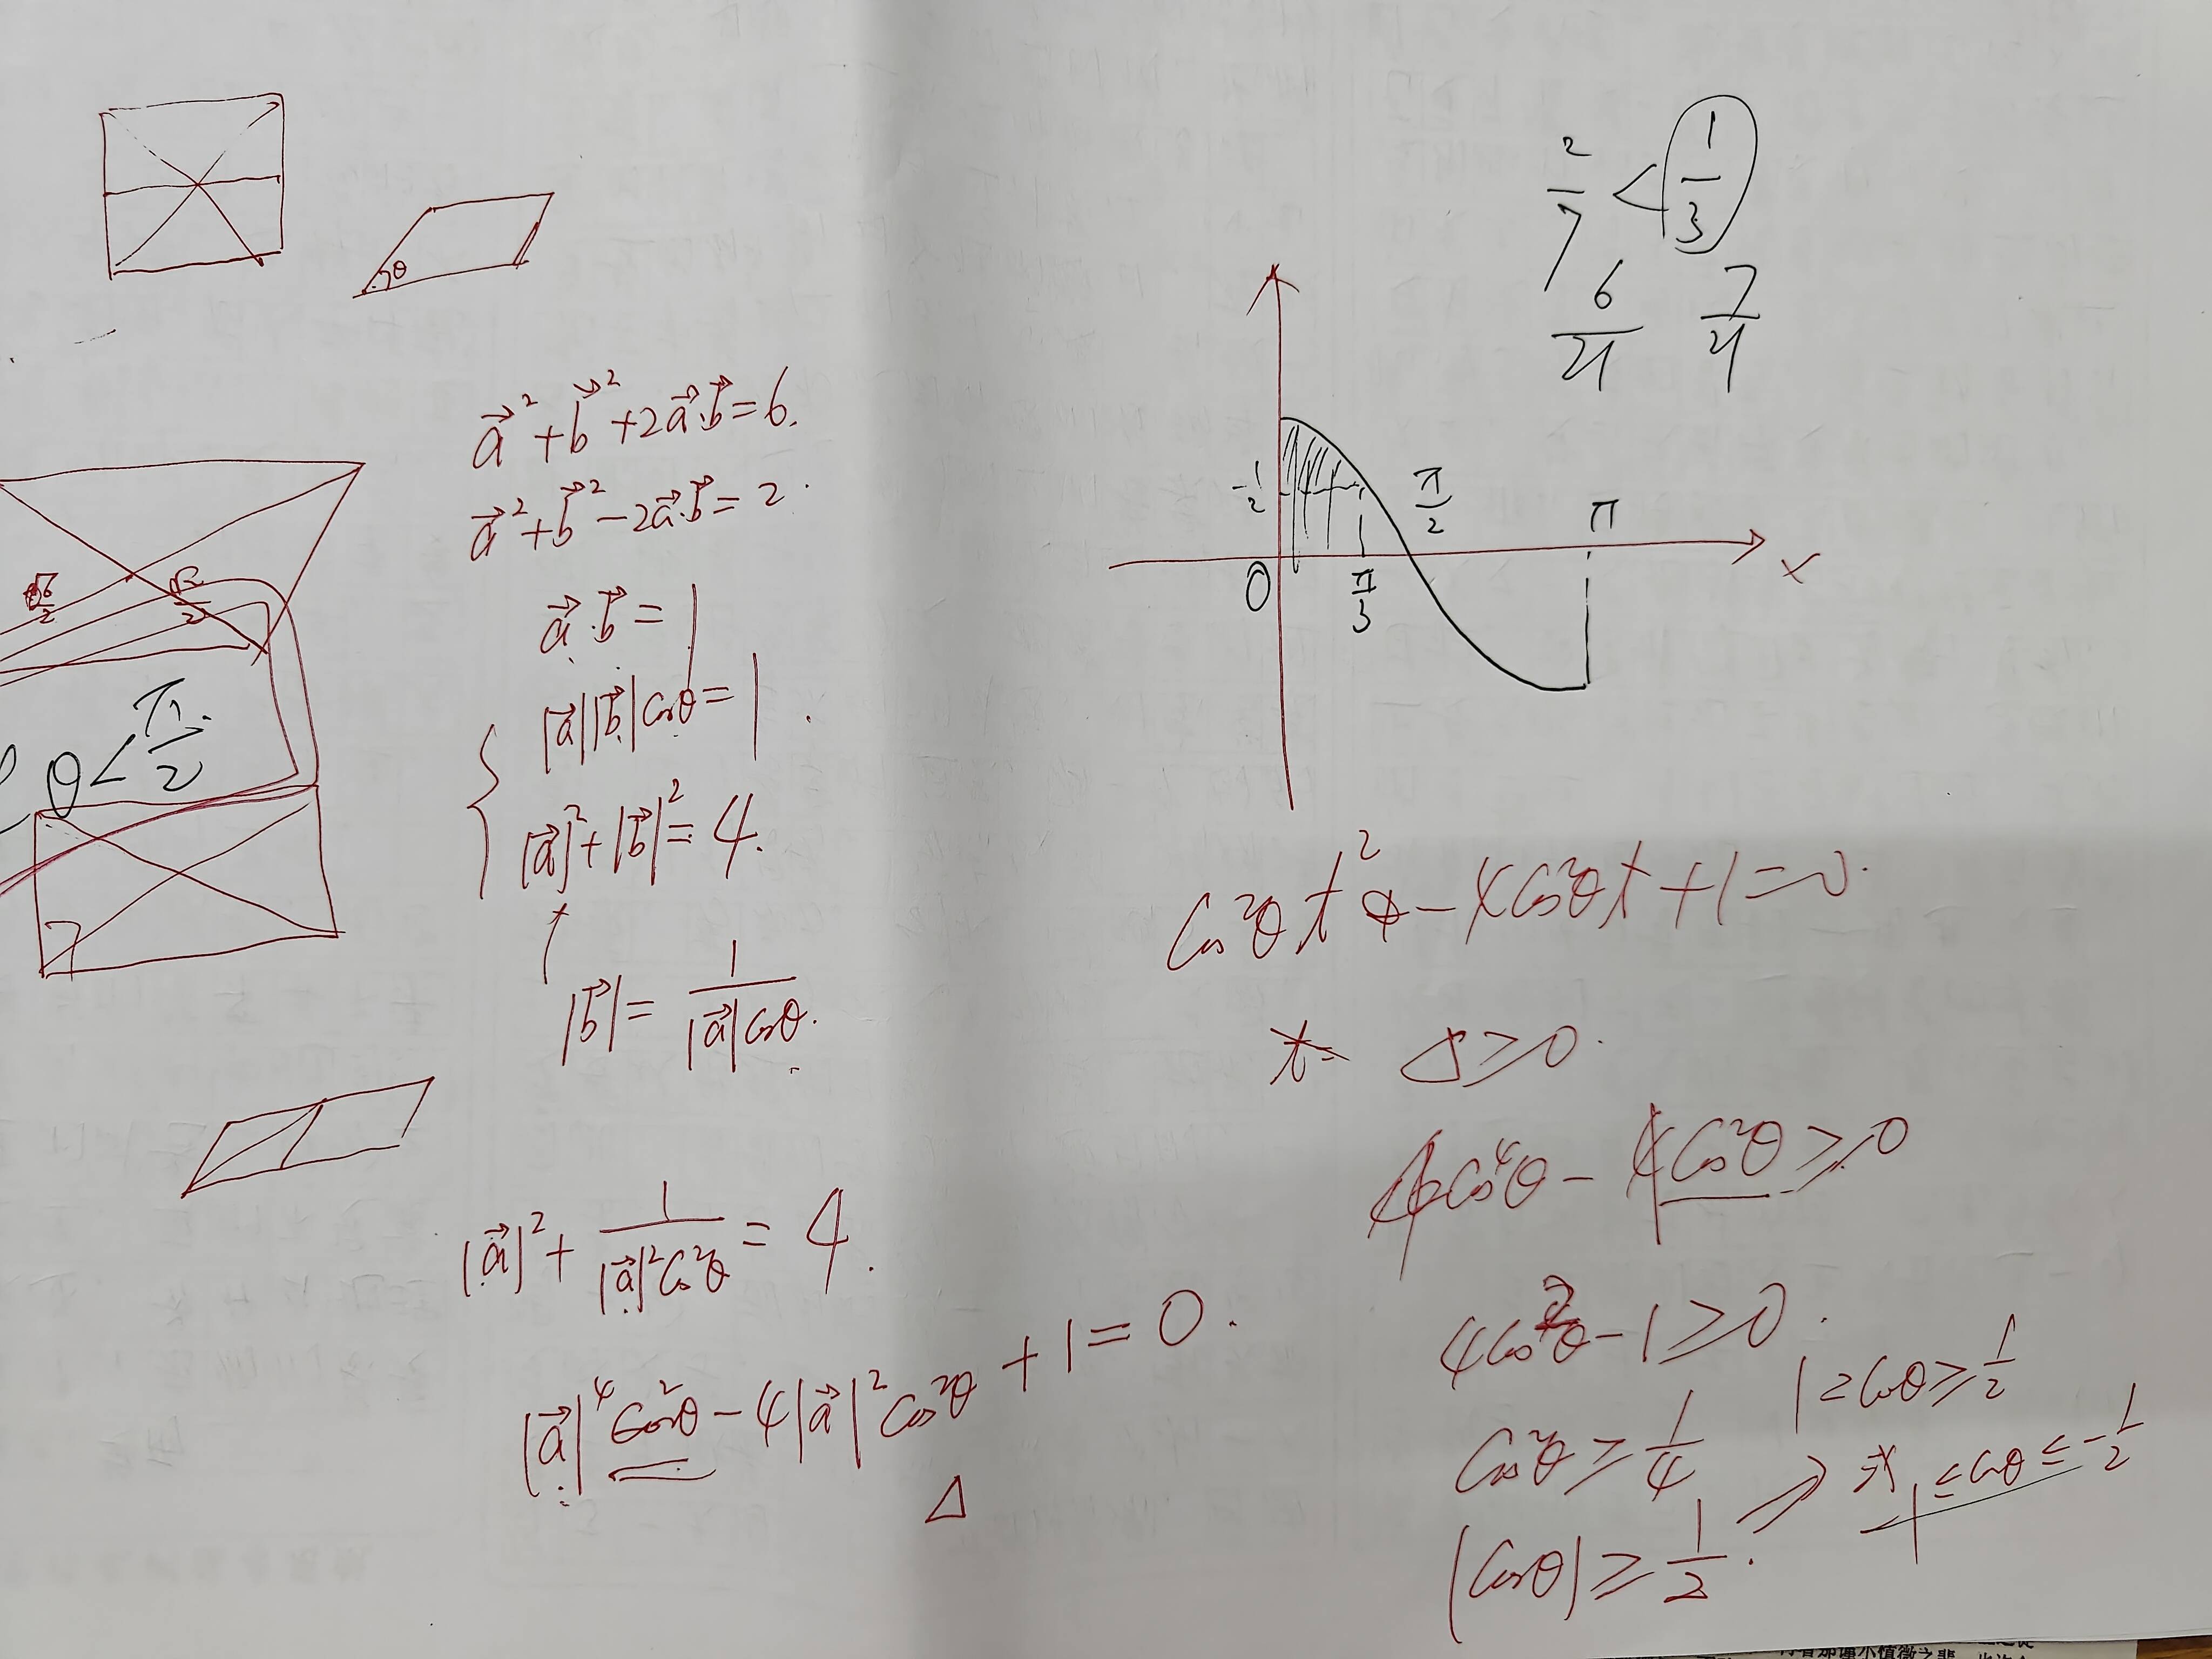 θ
a⃗² + b⃗² + 2a⃗·b⃗ = 6.
a⃗² + b⃗² − 2a⃗·b⃗ = 2.
a⃗·b⃗ = 1
|a⃗||b⃗|cosθ = 1.
|a⃗|² + |b⃗|² = 4.
|b⃗| = 1/(|a⃗|cosθ).
√6/2
√2/2
θ < π/2
|a⃗|² + 1/(|a⃗|²cos²θ) = 4.
|a⃗|⁴cos²θ − 4|a⃗|²cos²θ + 1 = 0.
Δ
2/7 < 1/3
6/21 7/21
1/2
π/2
π
0
π/3
x
cos²θ t² − 4cos²θ t + 1 = 0.
t = Δ ≥ 0.
16cos⁴θ − 4cos²θ ≥ 0
4cos²θ − 1 ≥ 0.
cos²θ ≥ 1/4
|cosθ| ≥ 1/2.
⇒ 1 ≥ cosθ ≥ 1/2
或 −1 ≤ cosθ ≤ −1/2